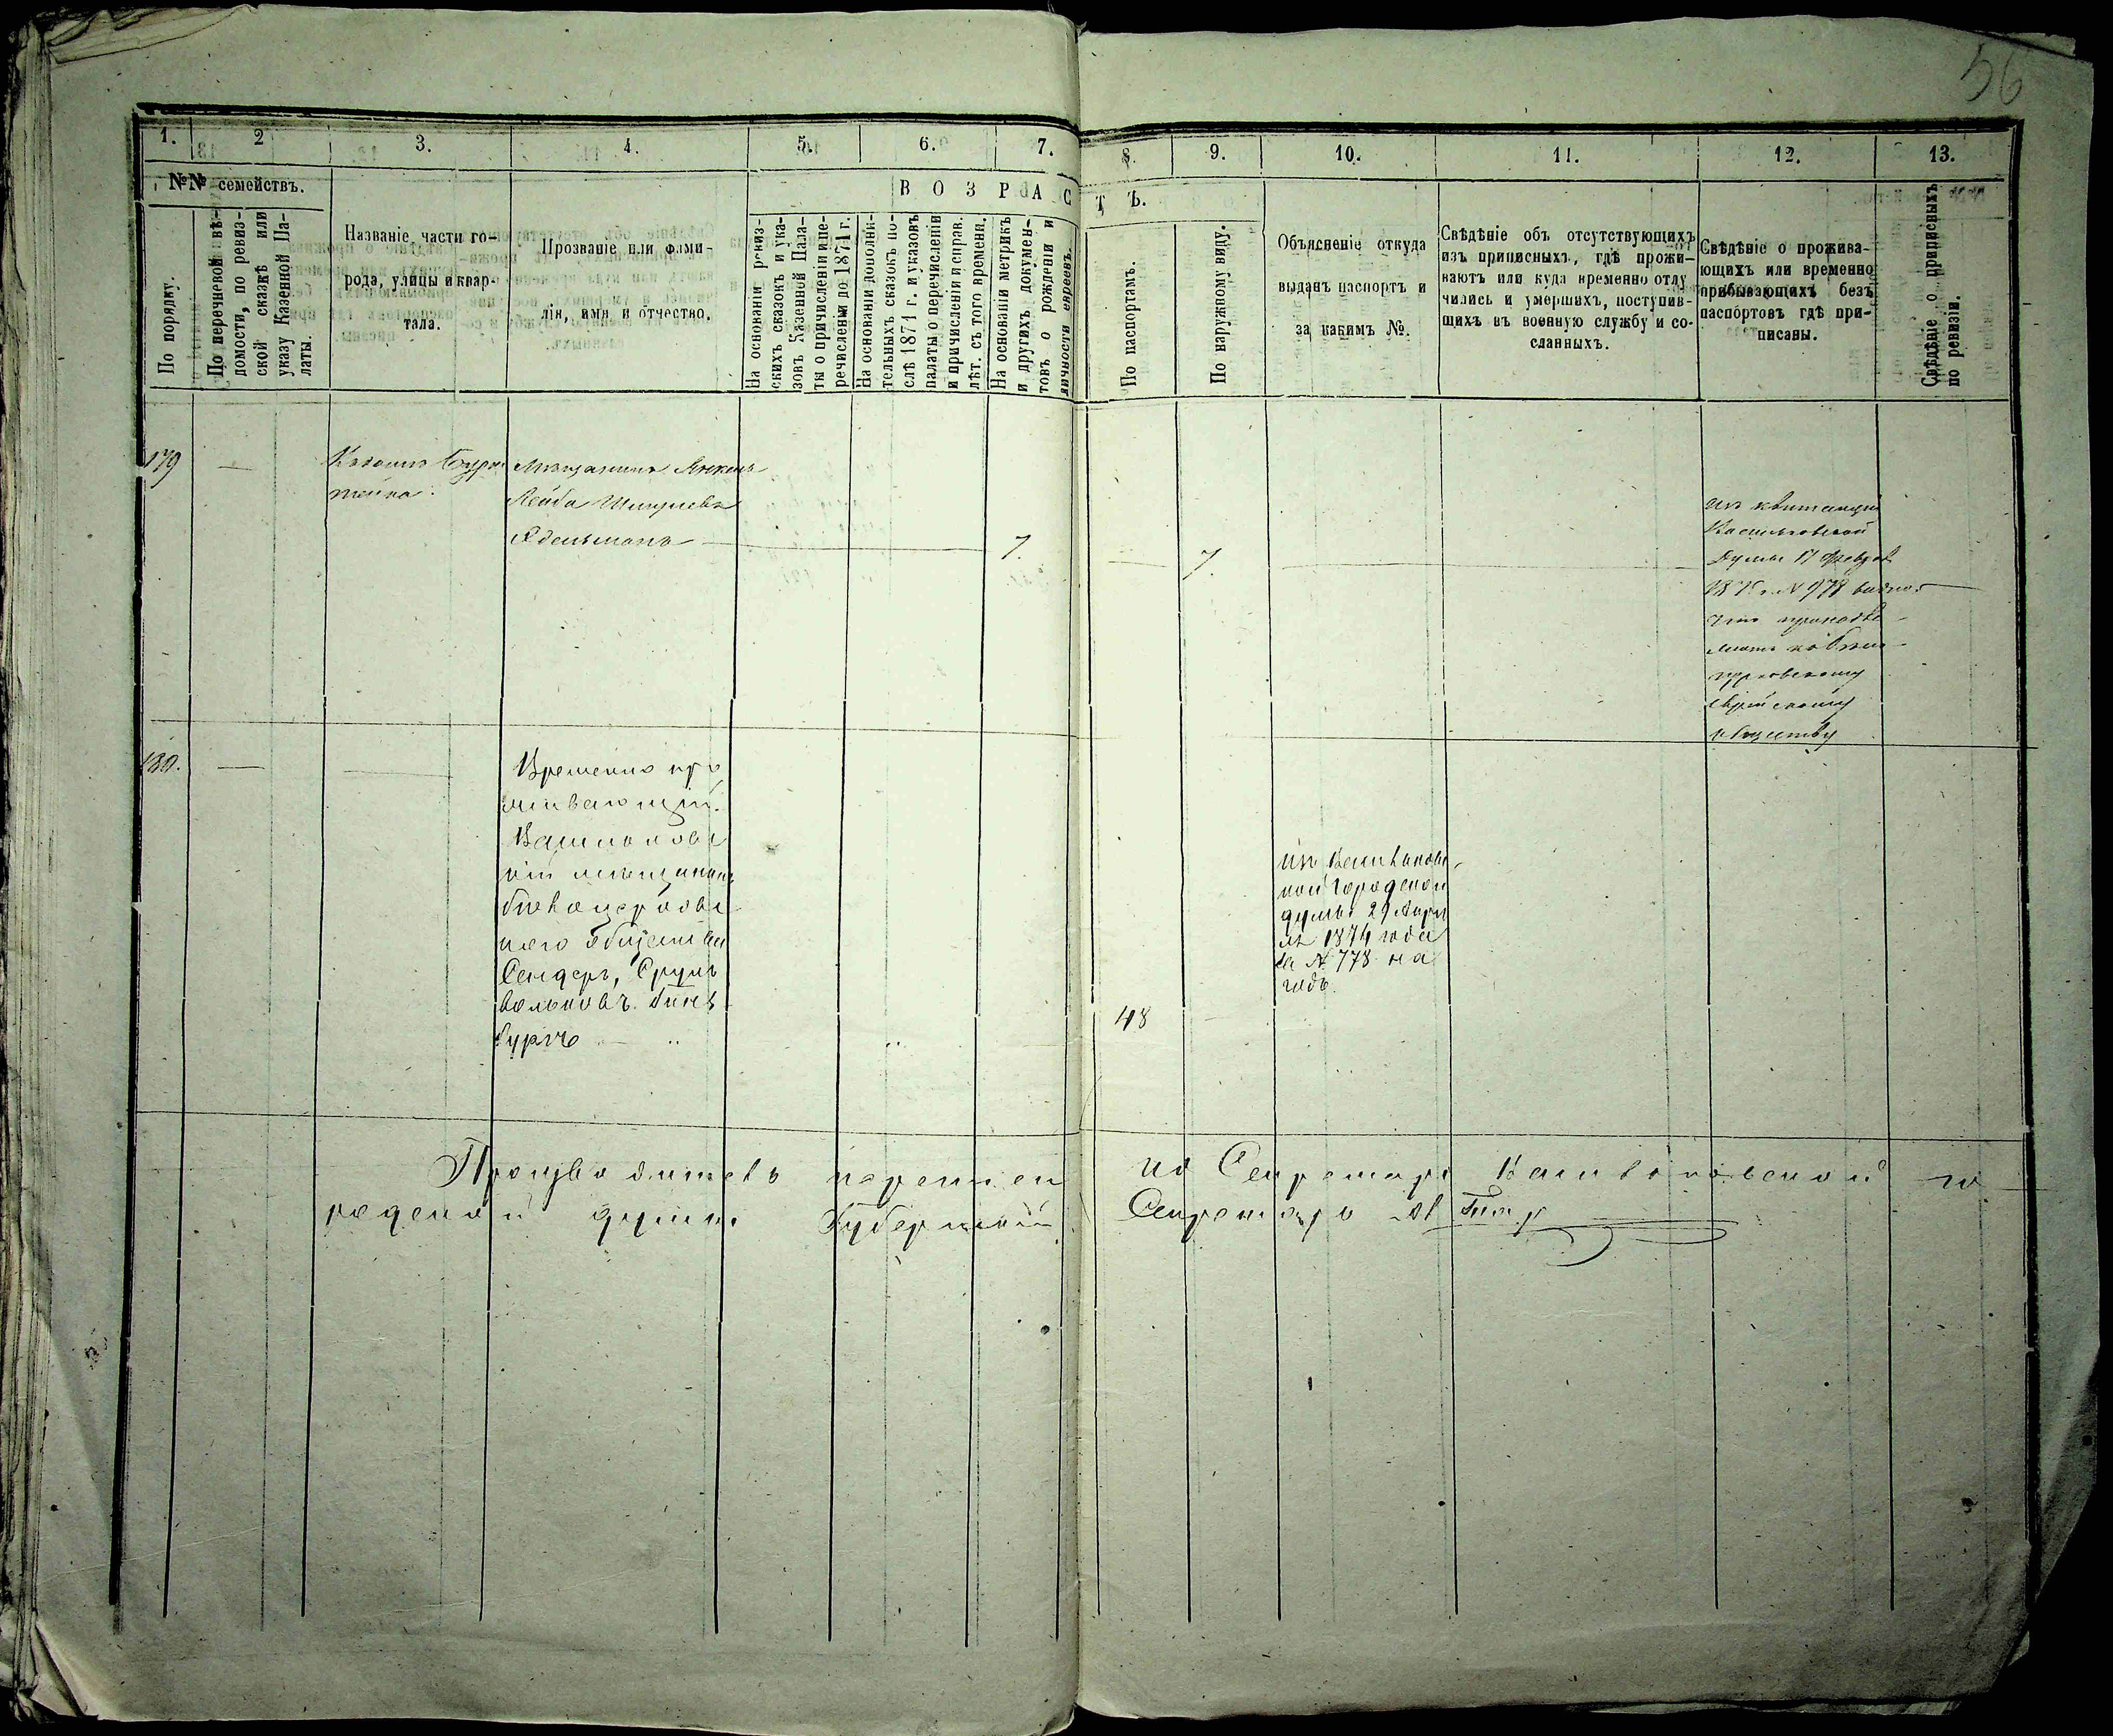 56
1. 2 3. 4. 5. 6. 7. 8. 9. 10. 11. 12. 13.
№№ семействъ.
По порядку.
По перечневой вѣ-
домости, по ревиз-
ской сказкѣ или
указу Казенной Па-
латы.
Названіе части го-
рода, улицы и квар-
тала.
Прозваніе или фами-
лія, имя и отчество.
ВОЗРАСТЪ.
На основаніи ревиз-
скихъ сказокъ и ука-
зовъ Казенной Пала-
ты о причисленіи и пе-
речисленіи до 1871 г.
На основаніи дополни-
тельныхъ сказокъ по-
слѣ 1871 г. и указовъ
палаты о перечисленіи
и причисленіи и справ.
лѣт. съ того времени.
На основаніи метрикъ
и другихъ докумен-
товъ о рожденіи и
личности евреевъ.
По паспортамъ.
По наружному виду.
Объясненіе откуда
выданъ паспортъ и
за какимъ №.
Свѣдѣніе объ отсутствующихъ
изъ приписныхъ, гдѣ прожи-
ваютъ или куда временно отлу
чились и умершихъ, поступив-
щихъ въ военную службу и со-
сланныхъ.
Свѣдѣніе о прожива-
ющихъ или временно
прибывающихъ безъ
паспортовъ гдѣ при-
писаны.
Свѣдѣніе о приписныхъ
по ревизіи.
179
Мѣщанинъ Янкель
Лейба Шмулевъ
Эдельманъ
7.
7.
изъ квитанціи
Васильковской
Думы 17 Феврал
№ 978 видно
что принадле-
житъ къ Бѣло-
церковскому
еврейскому
обществу
180.
Временно про
живающій
Васильковс
кій мѣщанинъ
бѣлоцерковс
каго общества
Сендеръ, Сруль
Вольковъ Гинз
бургъ
48
изъ Васильковс
кой городской
думы 29 Апрѣ
ля 1874 года
за № 778 на
годъ.
Производитель переписи ид Секретаря Васильковской го
родской думы Губернскій Секретарь